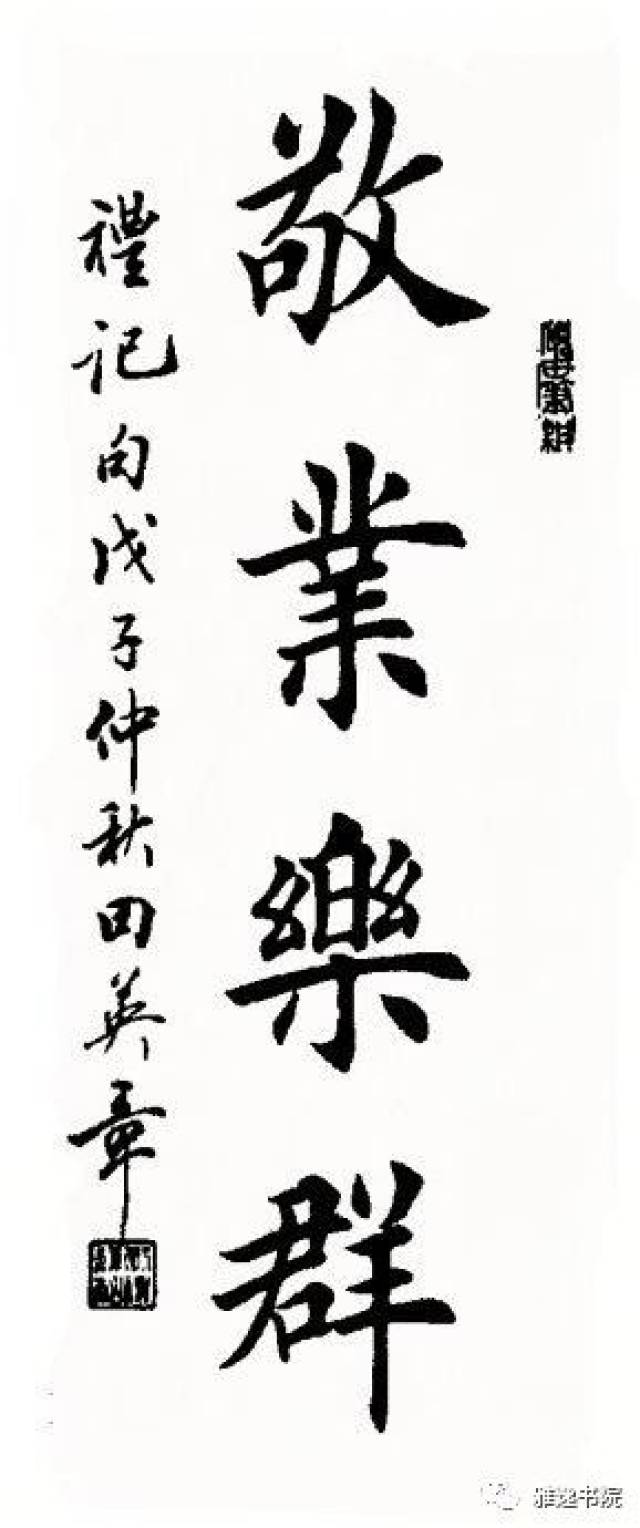 敬業樂群
禮記句戊子仲秋田英章
雅逸书院